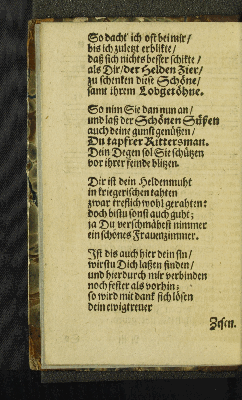 So dacht' ich oft bei mir/
bis ich zuletzt erblikte/
daß sich nichts besser schikte/
als Dir/der Helden Zier/
zu schenken diese Schöne/
samt ihrem Lobgetöhne.
So nim Sie dan nun an/
und laß der Schönen Süßen
auch deine gunst genüßen/
Du tapfrer Rittersman.
Dein Degen sol Sie schützen
vor ihrer feinde blitzen.
Dir ist dein Heldenmuht
in kriegerischen tahten
zwar treflich wohl gerahten:
doch bistu sonst auch guht;
ja Du verschmähest nimmer
ein schönes Frauenzimmer.
Ist dis auch hier dein sin/
wirstu Dich laßen finden/
und hierdurch mir verbinden
noch fester als vorhin;
so wird mit dank sich lösen
dein ewigtreuer
Zesen.